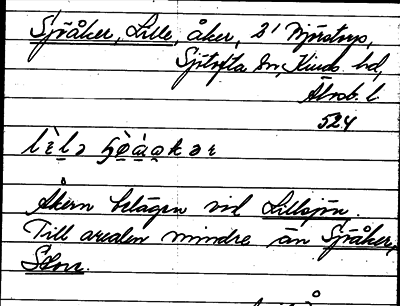 Sjråker, Lille, åker, 2¹ Mjöstorp,
Sjötofta sn, Kinds hd,
Älvsb. l.
524
Åkern belägen vid Lillsjön.
Till arealen mindre än Sjråker,
Stora.